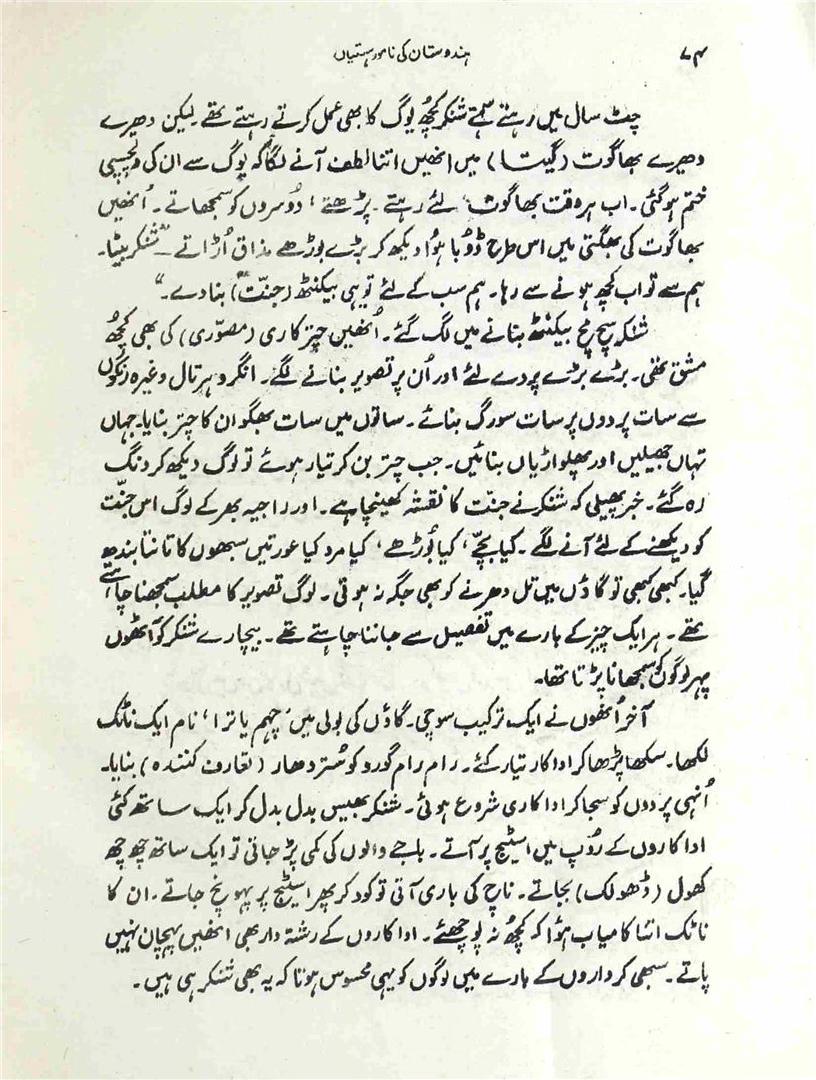 ۷۴
ہندوستان کی نامور ہستیاں
چٹ سال میں رہتے سہتے شنکر کچھ یوگ کا بھی عمل کرتے رہتے تھے۔ لیکن دھیرے
دھیرے بھاگوت (گیتا) میں انھیں اتنا لطف آنے لگا کہ یوگ سے ان کی دلچسپی
ختم ہو گئی۔ اب ہر وقت بھاگوت لئے رہتے۔ پڑھتے، دُوسروں کو سمجھاتے۔ اُنھیں
بھاگوت کی بھگتی میں اس طرح ڈُوبا ہوُا دیکھ کر بڑے بوڑھے مذاق اُڑاتے۔ "شنکر بیٹا۔
ہم سے تو اب کچھ ہونے سے رہا۔ ہم سب کے لئے تو ہی بیکنٹھ (جنّت) بنا دے۔"
شنکر سچ مچ بیکنٹھ بنانے میں لگ گئے۔ اُنھیں چتر کاری (مصوّری) کی بھی کچھُ
مشق تھی۔ بڑے بڑے پردے لئے اور اُن پر تصویر بنانے لگے۔ انگر و ہرتال وغیرہ رنگوں
سے سات پردوں پر سات سورگ بنائے۔ ساتوں میں سات بھگوان کا چتر بنایا۔ جہاں
تہاں جھیلیں اور پھلواڑیاں بنائیں۔ جب چتر بن کر تیار ہوئے تو لوگ دیکھ کر دنگ
رہ گئے۔ خبر پھیلی کہ شنکر نے جنت کا نقشہ کھینچا ہے۔ اور راجیہ بھر کے لوگ اس جنّت
کو دیکھنے کے لئے آنے لگے۔ کیا بچّے، کیا بُوڑھے، کیا مرد کیا عورتیں سبھوں کا تانتا بندھ
گیا۔ کبھی کبھی تو گاؤں میں تل دھرنے کو بھی جگہ نہ ہوتی۔ لوگ تصویر کا مطلب سمجھنا چاہتے
تھے۔ ہر ایک چیز کے بارے میں تفصیل سے جاننا چاہتے تھے۔ بیچارے شنکر کو آٹھوں
پہر لوگوں کو سمجھانا پڑتا تھا۔
آخر اُنھوں نے ایک ترکیب سوچی۔ گاؤں کی بولی میں 'چہم یاترا' نام ایک ناٹک
لکھا۔ سکھا پڑھا کر اداکار تیار کئے۔ رام رام گورو کو سُتر دھار (تعارف کنندہ) بنایا۔
اُنہی پردوں کو سجا کر اداکاری شروع ہوئی۔ شنکر بھیس بدل بدل کر ایک ساتھ کئی
اداکاروں کے رُوپ میں اسٹیج پر آتے۔ باجے والوں کی کمی پڑ جاتی تو ایک ساتھ چھ چھ
کھول (ڈھولک) بجاتے۔ ناچ کی باری آتی تو کود کر پھر اسٹیج پر پہونچ جاتے۔ ان کا
ناٹک اتنا کامیاب ہوُا کہ کچھُ نہ پوچھئے۔ اداکاروں کے رشتہ دار بھی انھیں پہچان نہیں
پاتے۔ سبھی کرداروں کے بارے میں لوگوں کو یہی محسوس ہوتا کہ یہ بھی شنکر ہی ہیں۔